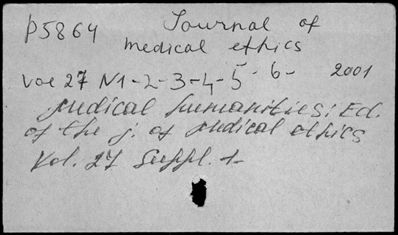 p5864 Journal of
medical ethics
voe 27 N1-2-3-4-5-6- 2001
Medical humanities: Ed.
of the j. of Medical ethics
Vol. 27 Suppl. 1-